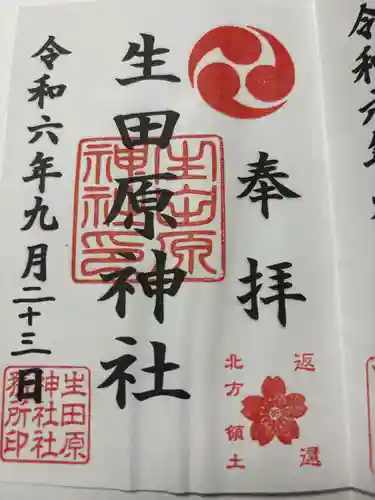 奉拝
生田原神社
令和六年九月二十三日
生田原
神社印
北方領土
返還
生田原
神社社
務所印
令和六年